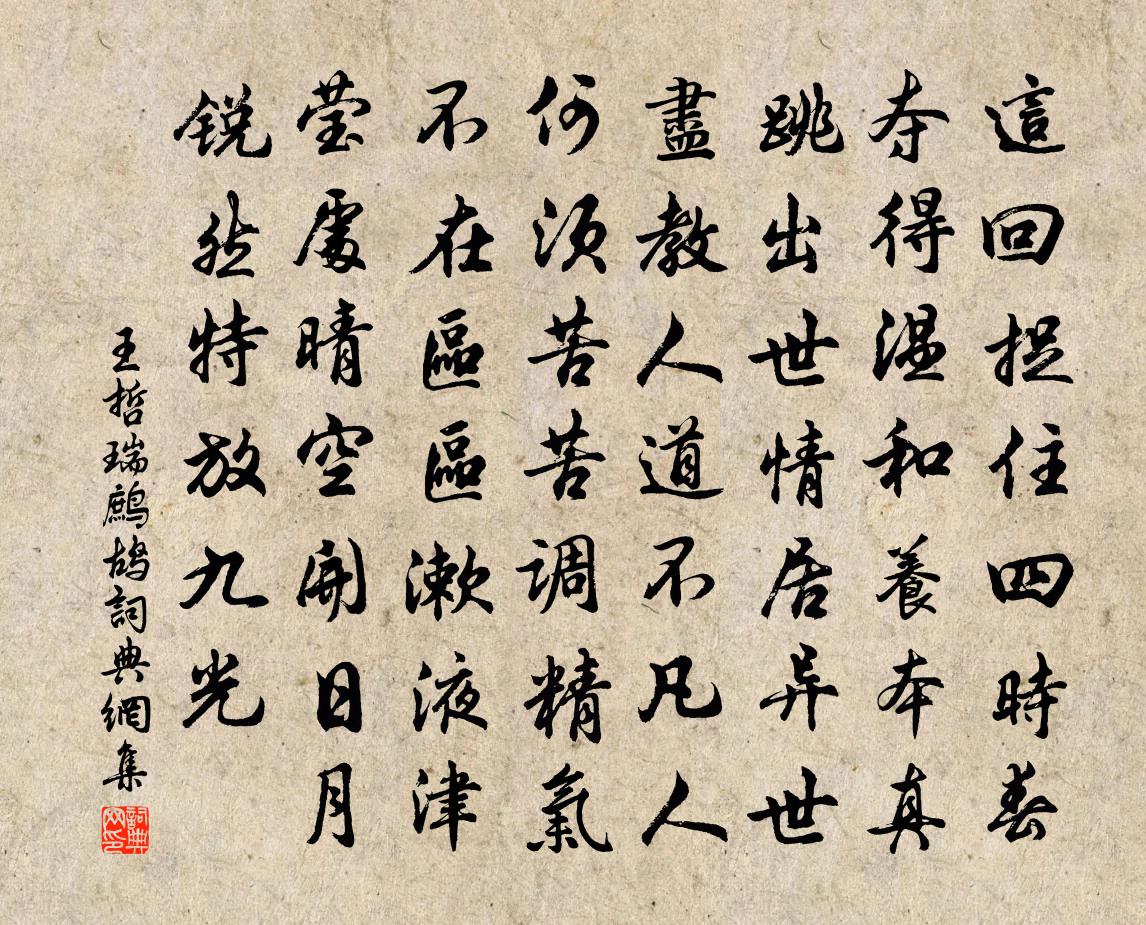 這回捉住四時春
夺得溫和養本真
跳出世世情居异世
盡教人道不凡人
何須苦苦調精氣
不在區區漱液津
莹處晴空開日月
锐然特放九光
王哲瑞鷓鴣詞典網集
詞典網印